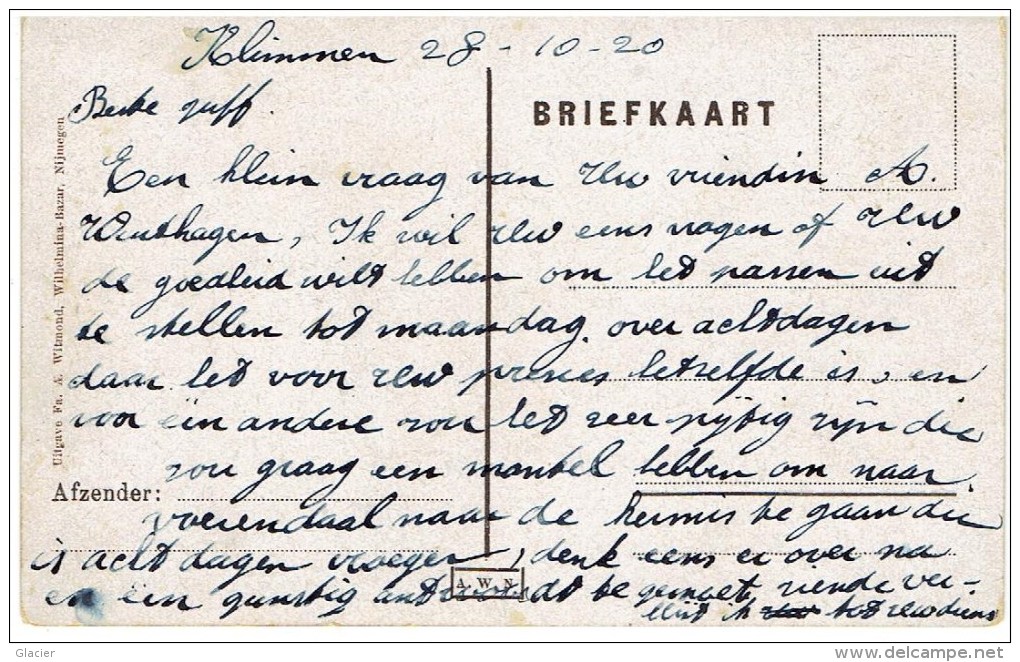 Klimmen 28-10-20
Beste juff.
BRIEFKAART
Een klein vraag van Uw vriendin A.
Winthagen, Ik wil Uw eens vragen of Uw
de goedheid wilt hebben om het passen uit
te stellen tot maandag over achtdagen
daar het voor Uw precies hetzelfde is, en
voor ëin andere zou het zeer spijtig zijn die
zou graag een mantel hebben om naar
Afzender:
Voerendaal naar de kermis te gaan die
is acht dagen vroeger, denk eens er over na
en ëin gunstig antwoordt te gemoet ziende ver-
blijf ik tot Uw diens
A. W. N.
Uitgave Fa. A. Witmond, Wilhelmina-Bazar, Nijmegen
Glacier
© delcampe.net